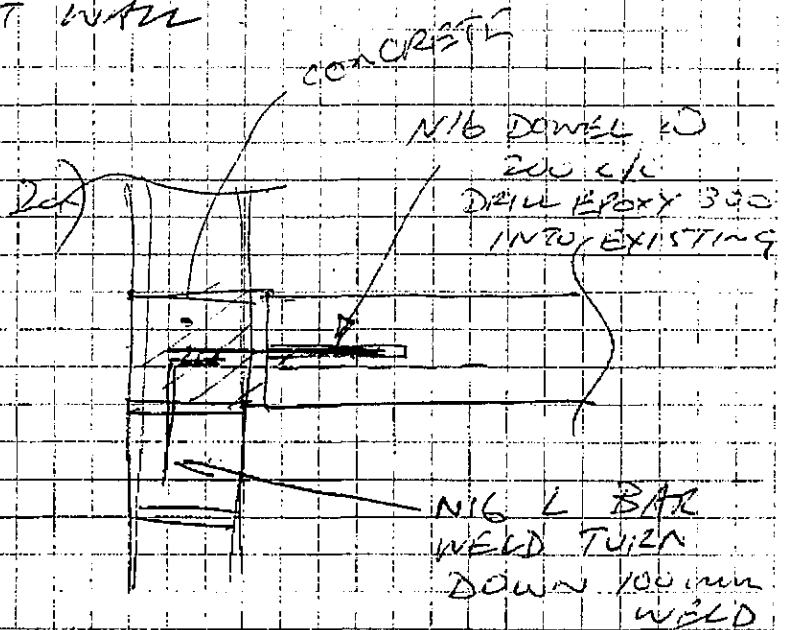 T WALL
CONCRETE
N16 DOWEL @
200 c/c
DRILL EPOXY 300
INTO EXISTING
N16 L BAR
WELD TURN
DOWN 100mm
WELD